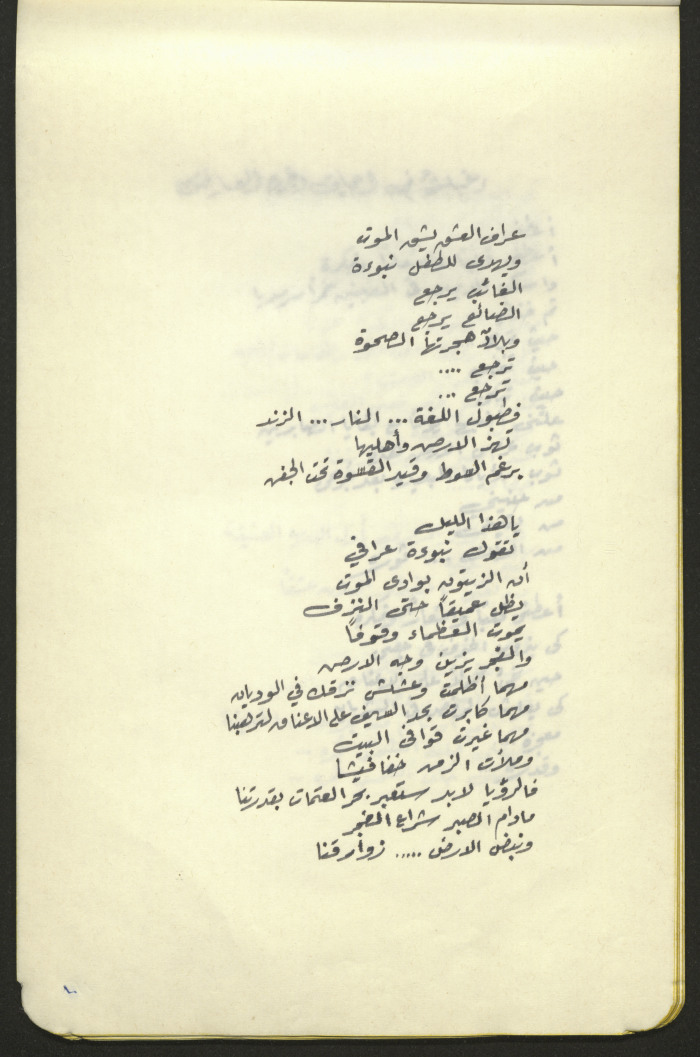 عراف العشق يشق الموت
ويهدي للطفل نبوءة
الغائب يرجع
الضائع يرجع
وبلاد هجرتها الصحوة
ترجع ....
ترجع ...
فطبول اللغة ... النار ... الزند
تهز الارض وأهليها
برغم السوط وقيد القسوة تحت الجفن
يا هذا الليل
تقول نبوءة عرافي
أن الزيتون بوادي الموت
يظل عميقاً حتى النزف
يموت العظماء وقوفاً
والفجر يزين وجه الارض
مهما أظلمت وعشش نزقك في الوديان
مهما كابرت بحد السيف على الاعناق لترهبنا
مهما غيرت قوافي البيت
وملأت الزمن خفافيشا
فالرؤيا لابد ستعبر بحر العتمات بقدرتنا
مادام الصبر شراع الفجر
ونبض الارض ..... زوارقنا